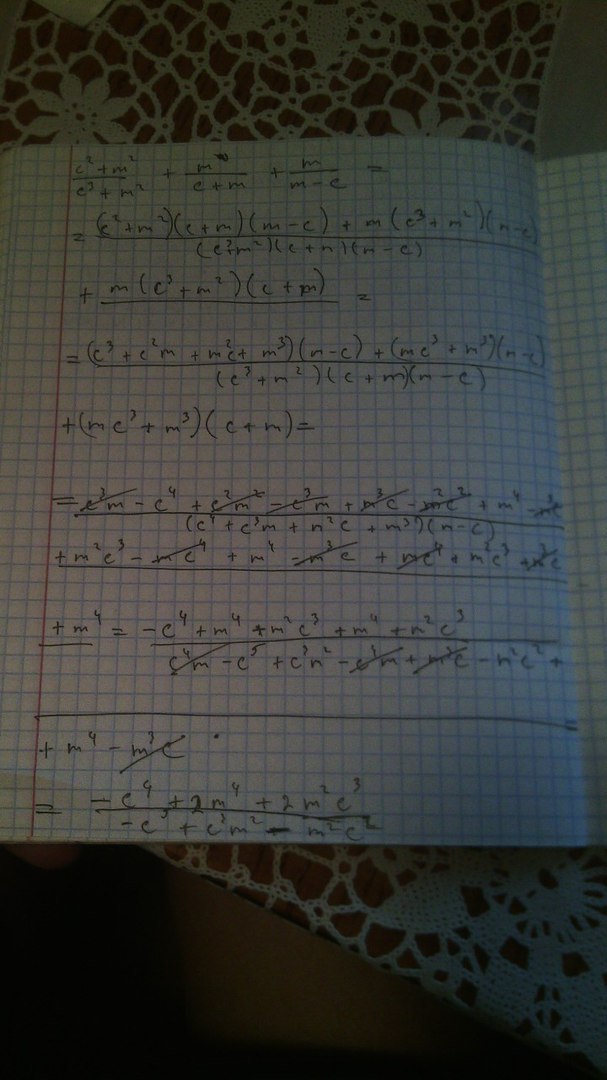 (c² + m²)/(c³ + m²) + m/(c + m) + m/(m − c) =
= ((c² + m²)(c + m)(m − c) + m(c³ + m²)(m − c))/((c³ + m²)(c + m)(m − c))
+ m(c³ + m²)(c + m) =
= ((c³ + c²m + m²c + m³)(m − c) + (mc³ + m³)(m − c))/((c³ + m²)(c + m)(m − c))
+ (mc³ + m³)(c + m) =
= (c³m − c⁴ + c²m² − c³m + m³c − m²c² + m⁴ − m³c)/((c⁴ + c³m + m²c + m³)(m − c))
+ m²c³ − mc⁴ + m⁴ − m³c + mc⁴ + m²c³ + m³c
+ m⁴ = (−c⁴ + m⁴ + m²c³ + m⁴ + m²c³)/(c⁴m − c⁵ + c³m² − c⁴m + m³c − m²c² +
+ m⁴ − m³c
= (−c⁴ + 2m⁴ + 2m²c³)/(−c⁵ + c³m² − m²c²)